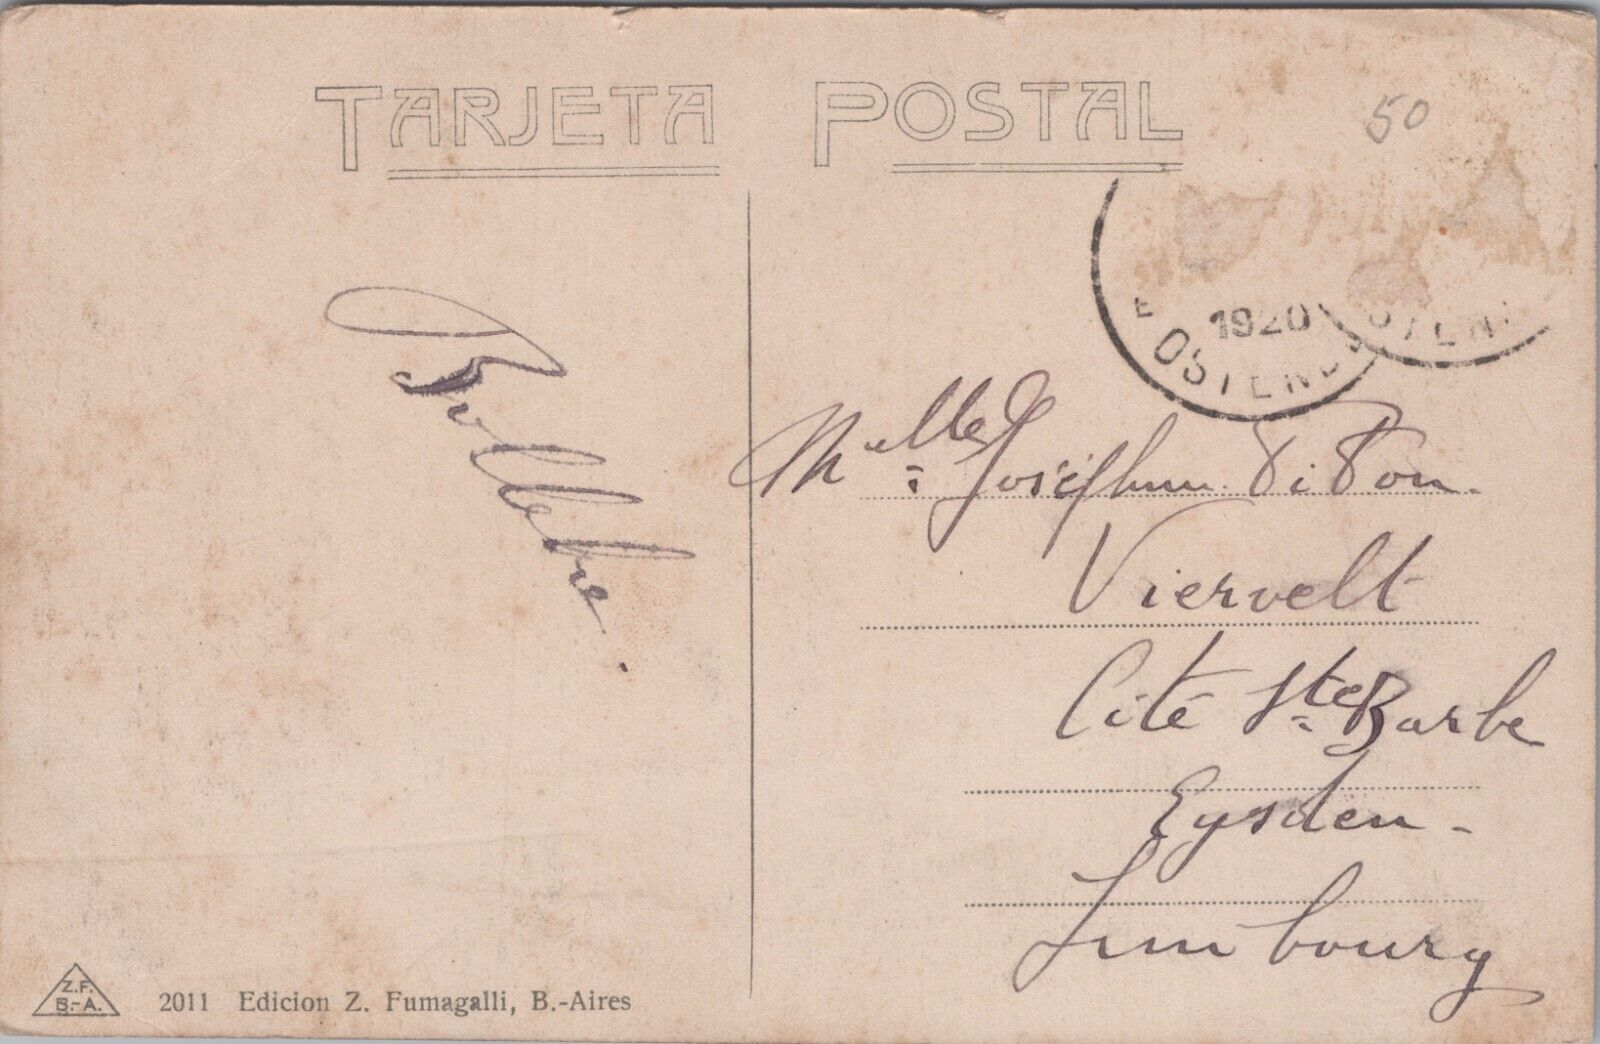 TARJETA POSTAL
50
1920
E OSTEND
OSTEN
Melle Joséphine
Viervelt
Cité Ste Barbe
Eysden -
Limbourg
Z.F.
B.-A.
2011 Edicion Z. Fumagalli, B.-Aires